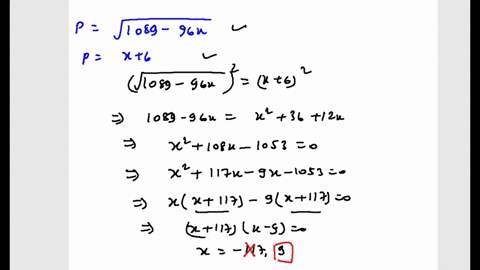 P = √1089 - 96x ✓
P = x+6 ✓
(√1089 - 96x)² = (x+6)²
⇒ 1089 - 96x = x² + 36 + 12x
⇒ x² + 108x - 1053 = 0
⇒ x² + 117x - 9x - 1053 = 0
⇒ x(x+117) - 9(x+117) = 0
⇒ (x+117)(x-9) = 0
x = -117, 9